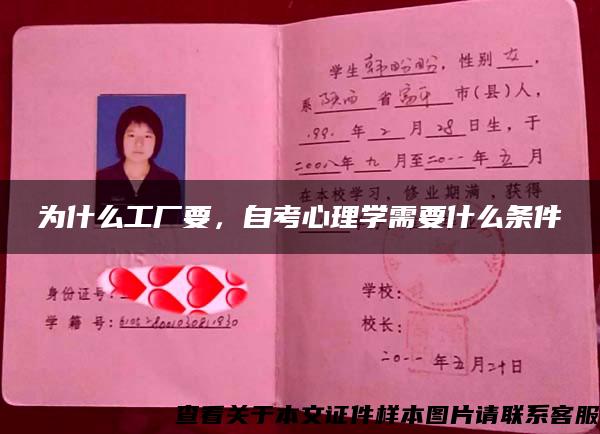 学生韩盼盼，性别女，
系陕西省富平市(县)人，
199 年2月28日生，于
二00八年九月至二0一一年五月
在本校学习，修业期满，获得
为什么工厂要，自考心理学需要什么条件
身份证号：
学籍号：
学校：
校长：
二0一一年五月二十日
查看关于本文证件样本图片请联系客服